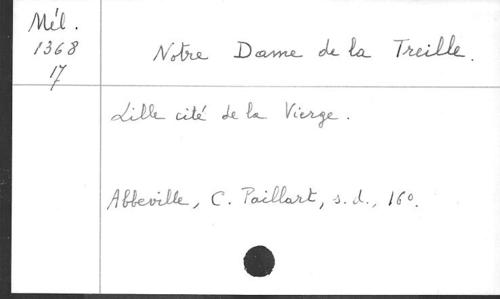 Mél.
1368
17
Notre Dame de la Treille.
Lille cité de la Vierge.
Abbeville, C. Paillart, s.d., 16º.